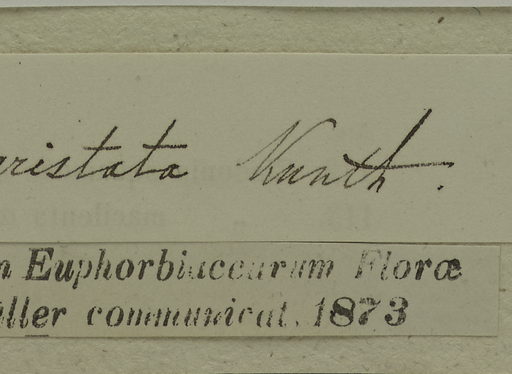 aristata Kunth.
m Euphorbiacearum Floræ
üller communicat. 1873